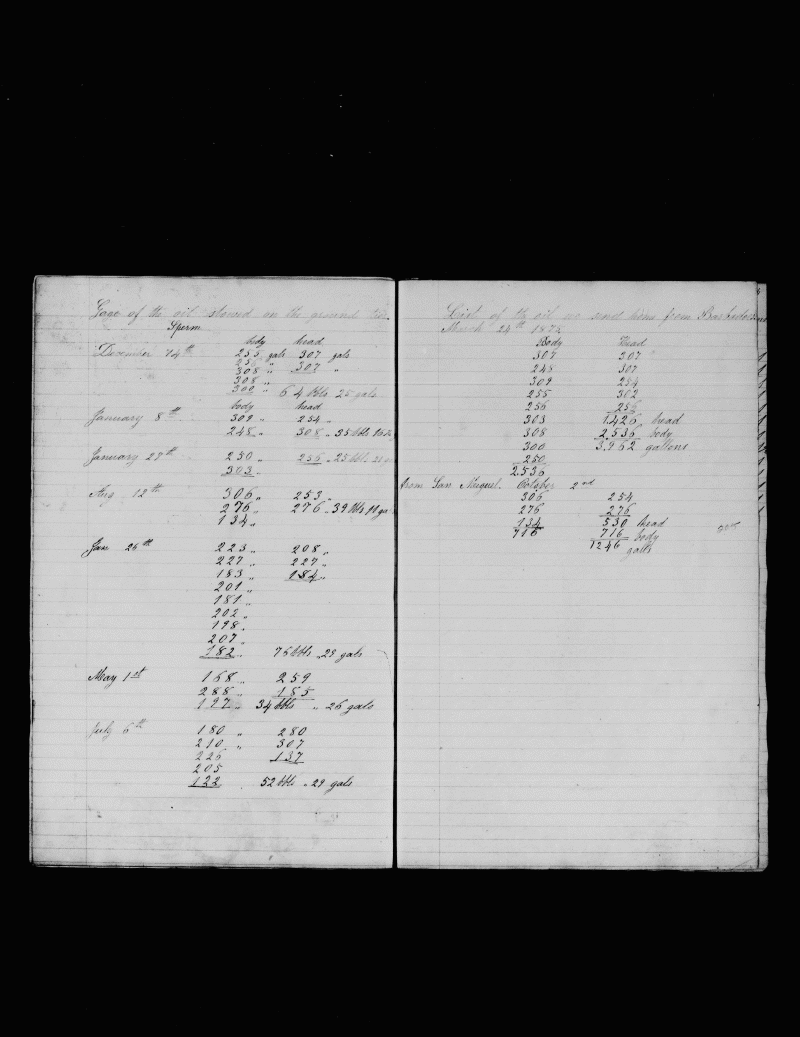 Gage of the oil stowed on the ground tier.
Sperm
body head
December 14th 255 gals 307 gals
256 "
308 " 307 "
308 "
300 " 64 bbls 25 gals
body head
January 8th 309 " 254 "
248 " 308 " 35 bbls
January 27th 250 " 256 " 25 bbls
303 "
Aug 12th 306 " 253 "
276 " 276 " 39 bbls 18 ga
134 "
Jan 26th 223 " 208 "
227 " 227 "
183 " 184 "
201 "
181 "
202 "
198 "
207 "
182 " 75 bbls " 29 gals
May 1st 168 " 259
288 " 155
197 " 34 bbls " 26 gals
July 6th 180 " 280
210 " 307
226 137
205
122 52 bbls " 29 gals
List of the oil we send home from Barbadoes
March 24th 187
Body Head
307 307
248 307
309 254
255 302
256 256
303 1,426 head
308 2,536 body
300 3,962 gallons
250
2,536
from San Muguel. October 2nd
306 254
276 276
134 530 head
716 716 body
1246 galls